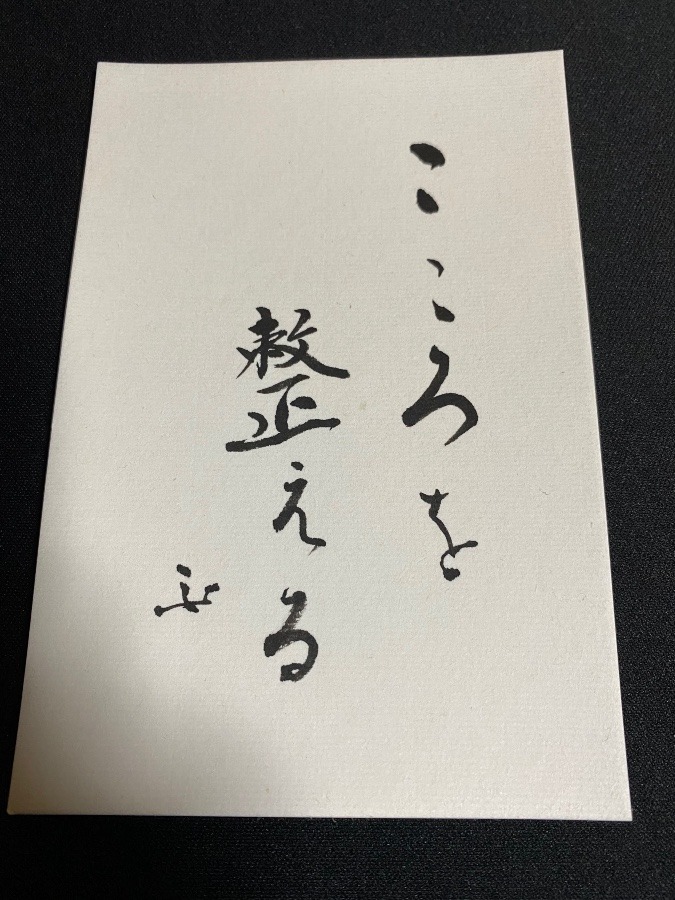 こころを
整える